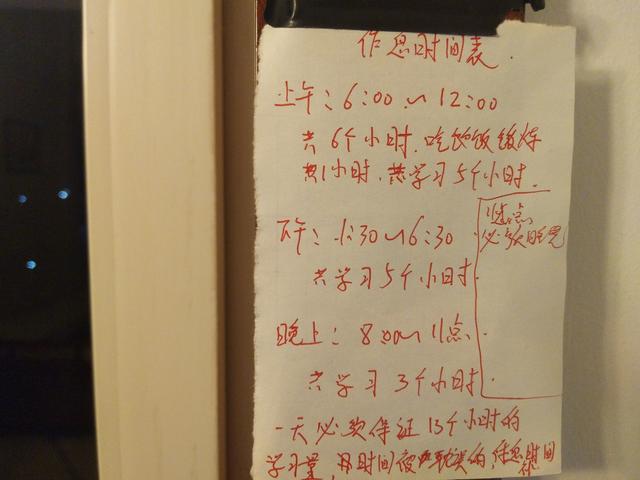 作息时间表.
上午:6:00~12:00
共6个小时.吃饭锻炼
共1小时.共学习5个小时.
下午:1:30~6:30
共学习5个小时.
11点
必须睡觉
晚上:8:00~11点.
共学习3个小时.
一天必须保证13个小时的
学习量,时间